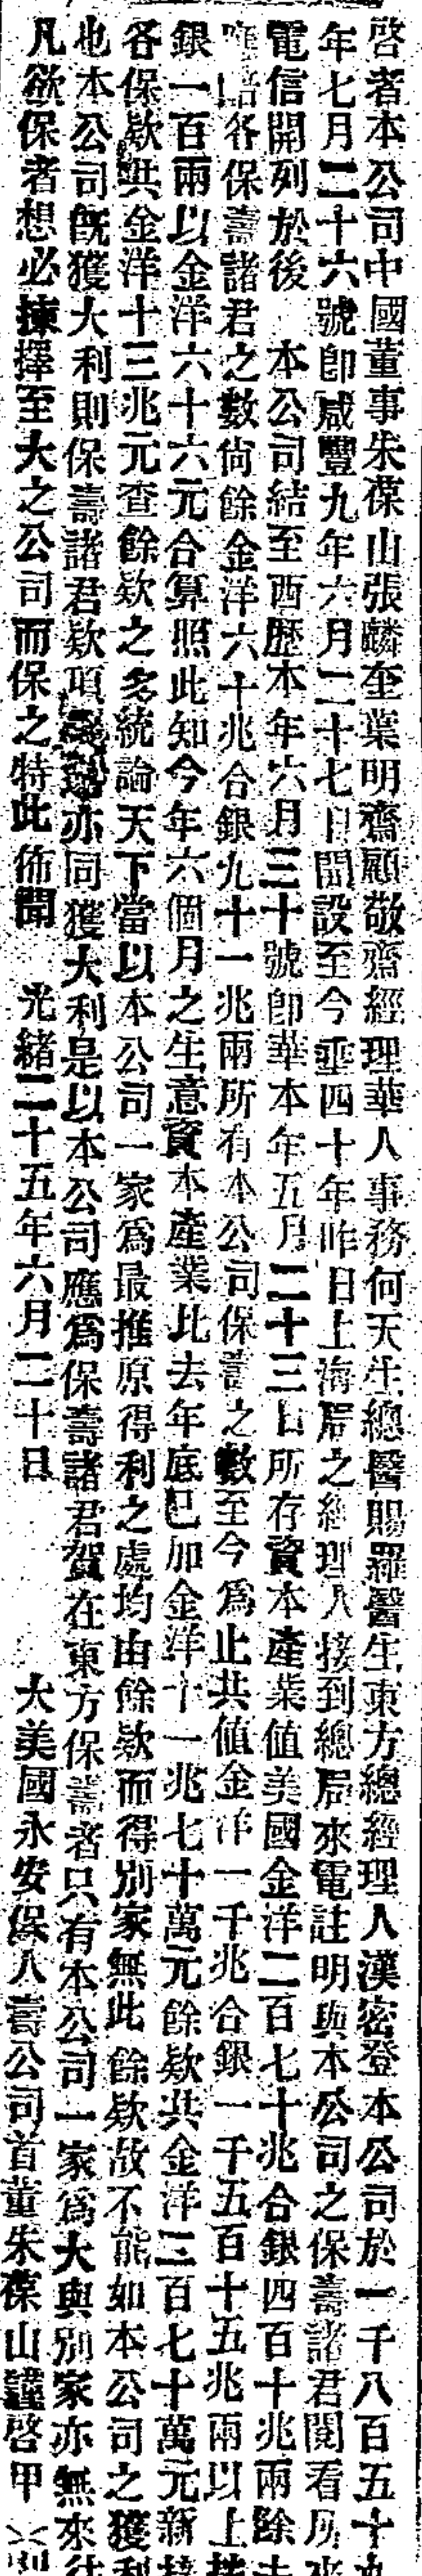 啓者本公司中國董事朱葆山張麟奎葉明齋顧敬齋經理華人事務何天生總醫賜羅醫生東方總經理人漢密登本公司於一千八百五十九
年七月二十六號卽咸豐九年六月二十七日開設至今垂四十年昨日上海局之經理人接到總局來電註明與本公司之保壽諸君閱看所來
電信開列於後 本公司結至西歷本年六月三十號卽華本年五月二十三日所存資本產業值美國金洋二百七十兆合銀四百十兆兩除去
應賠各保壽諸君之數尙餘金洋六十兆合銀九十一兆兩所有本公司保壽之數至今爲止共値金洋一千兆合銀一千五百十五兆兩以上
銀一百兩以金洋六十六元合算照此知今年六個月之生意資本產業比去年底已加金洋十一兆七十萬元餘欵共金洋三百七十萬元新接
各保欵共金洋十三兆元查餘欵之多統論天下當以本公司一家爲最推原得利之處均由餘欵而得別家無此餘欵故不能如本公司之獲利
也本公司旣獲大利則保壽諸君欵項亦同獲大利是以本公司應爲保壽諸君賀在東方保壽者只有本公司一家爲大與別家亦無來往
凡欲保者想必揀擇至大之公司而保之特此佈聞 光緒二十五年六月二十日 大美國永安保人壽公司首董朱葆山謹啓甲